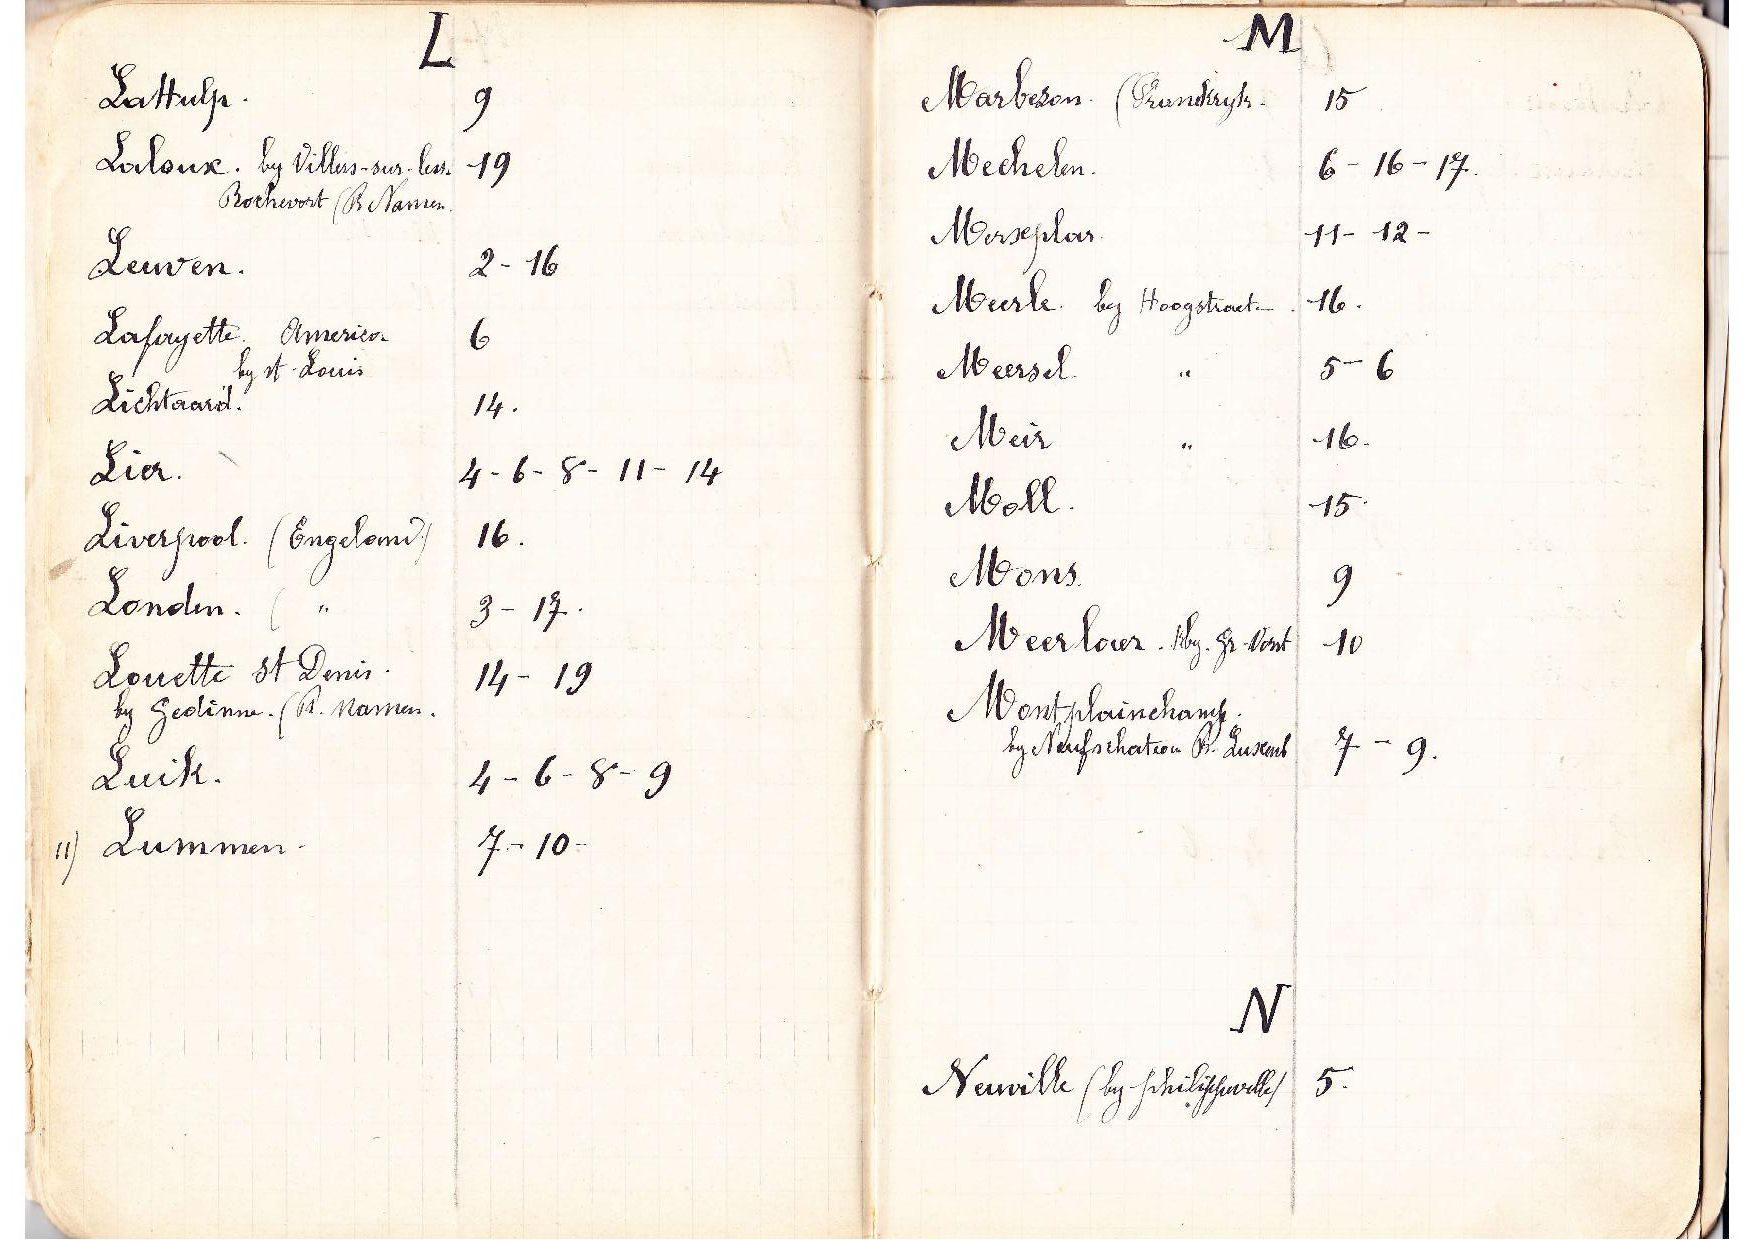 L
LaHulp. 9
Laloux. by Villers-sur-less. 19
Rochevort (P. Namen.
Leuven. 2 - 16
Lafayette. America. 6
by st Louis
Lichtaard. 14.
Lier. 4 - 6 - 8 - 11 - 14
Liverpool. (Engeland) 16.
Londen. ( " 3 - 17.
Louette St Denis. 14 - 19
by Gedinne. (P. Namen.
Luik. 4 - 6 - 8 - 9
11) Lummen. 7 - 10 -
M
Marbezon. (Frankryk. 15
Mechelen. 6 - 16 - 17.
Merxplas. 11 - 12 -
Meerle. by Hoogstraet. 16.
Meersel. " 5 - 6
Meir " 16.
Moll. 15.
Mons. 9
Meerlaer. by. Vorst 10
Montplainchamp.
by Neufschateau P. Luxemb 7 - 9.
N
Neuville (by Philippeville) 5.